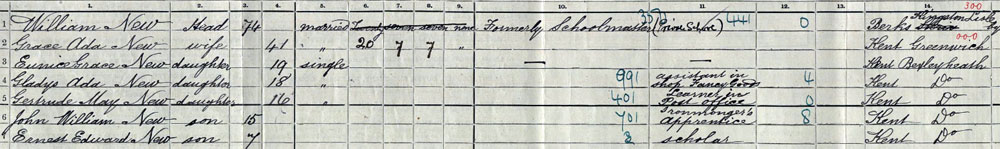 1. 2. 3. 4. 5. 6. 7. 8. 9. 10. 11. 12. 13. 14.
1 William New Head 74 married Formerly Schoolmaster (Private School) 441 0 300 Kingston Lisle Berks
2 Grace Ada New wife 41 " 20 7 7 — — 000 Kent Greenwich
3 Eunice Grace New daughter 19 single — — Kent Bexleyheath
4 Gladys Ada New daughter 18 " 991 assistant in shop Fancy Goods 4 Kent Do
5 Gertrude May New daughter 16 " 401 Learner in Post office 0 Kent Do
6 John William New son 15 701 Ironmonger's Apprentice 8 Kent Do
Ernest Edward New son 7 3 scholar Kent Do